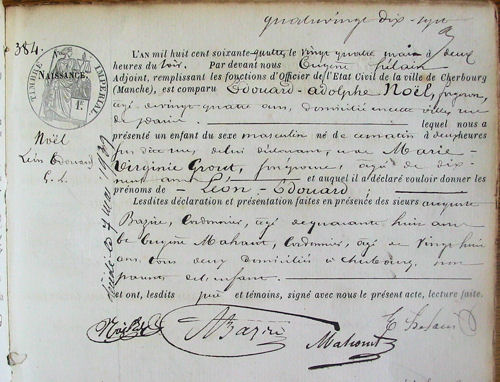 quatrevingt dix-sept
384.
TIMBRE IMPÉRIAL
NAISSANCE
Noël
Léon Edouard
L'AN mil huit cent soixante-quatre le vingt quatre mai à deux
heures du soir. Par devant nous Eugène
Adjoint, remplissant les fonctions d'Officier de l'Etat Civil de la ville de Cherbourg
(Manche), est comparu Edouard-adolphe Noël,
agé de vingt quatre ans, domicilié en cette ville, rue
lequel nous a
présenté un enfant du sexe masculin né ce matin à deux heures
de lui déclarant, et de Marie-
Virginie Grout, agée de dix-
neuf ans et auquel il a déclaré vouloir donner les
prénoms de - Léon-Edouard -
Lesdites déclaration et présentation faites en présence des sieurs auguste
Bazire, Cordonnier, agé de quarante huit ans
Eugène Mahaut, Cordonnier, agé de vingt huit
ans tous deux domiciliés à cherbourg, non
parents de l'enfant.
et ont, lesdits père et témoins, signé avec nous le présent acte, lecture faite.
Noël
A Bazire
Mahaut